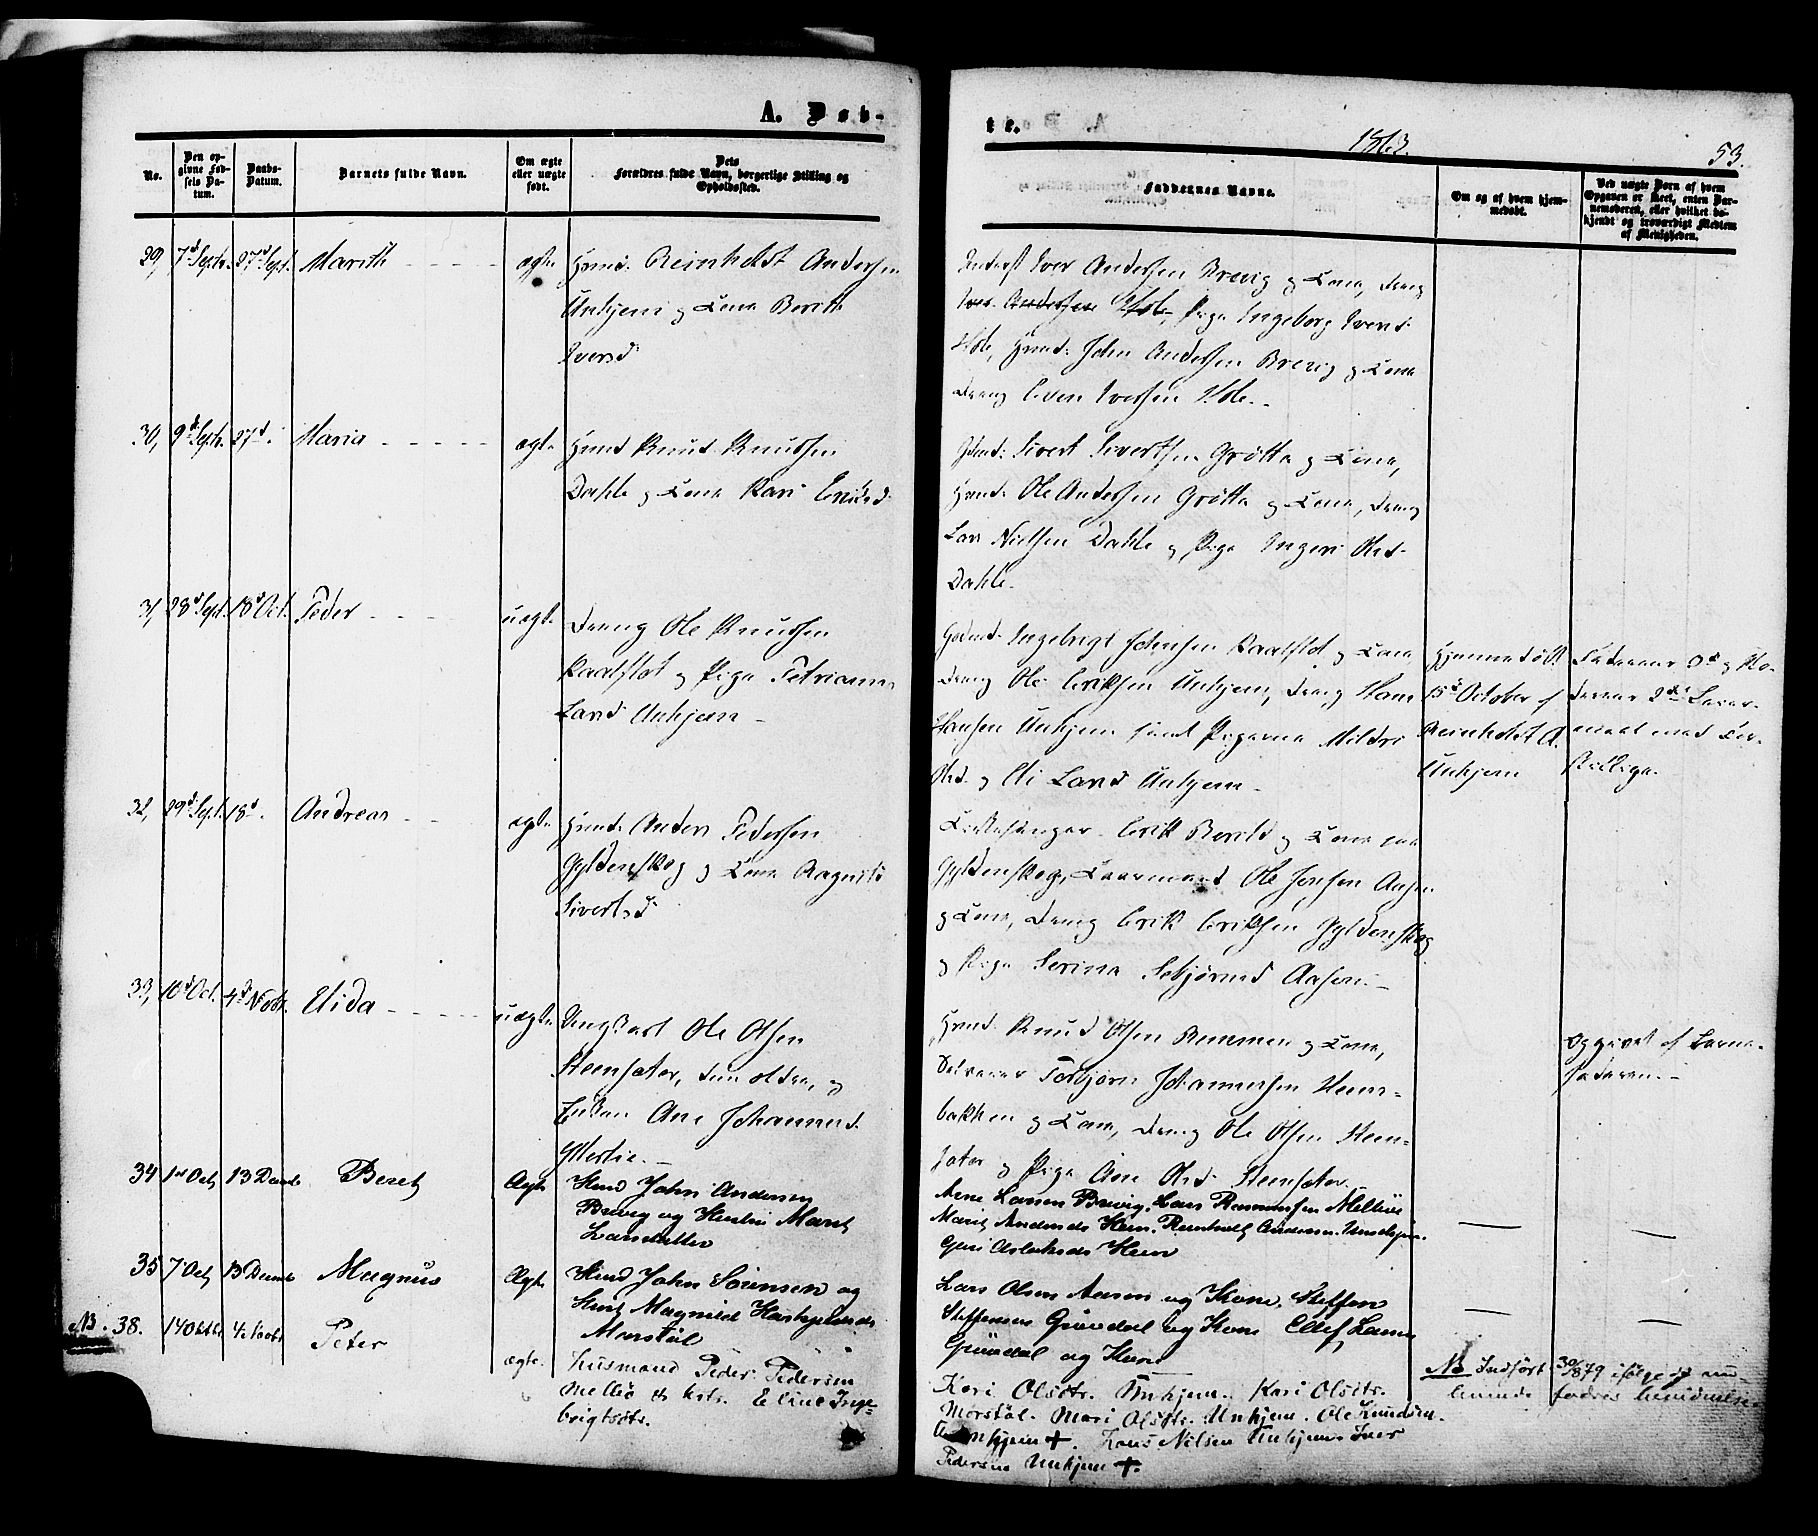 A. Døb-
te.
1863.
53.
No.
Den op-
givne Fød-
sels Da-
tum.
Daabs-
Datum.
Barnets fulde Navn.
Om ægte
eller uægte
født.
Dets
Forældres fulde Navn, borgerlige Stilling og
Opholdssted.
Faddernes Navne.
Om og af hvem hjem-
medøbt.
Ved uægte Børn af hvem
Opgaven er skeet, enten Bar-
nemoderen, eller hvilket be-
kjendt og troværdigt Medlem
af Menigheden.
29, 7d Septr. 27d Sept. Marith ægte
Gmd. Reinholdt Andersen
Unhjem og Kone Berith
Iversd.
Iver Andersen Brevig og Kone, Dreng
Iver Andersen Hole, Pige Ingeborg Iversd.
Hole, Gmd. John Andersen Brevig og Kone
Dreng Even Iversen Hole.
30, 9d Septr. 27d. Maria ægte
Gmd Knud Knudsen
Dahle og Kone Kari Eriksd.
Gmd. Sivert Sivertsen Grøtta og Kone,
Gmd. Ole Andersen Grøtta og Kone, Dreng
Lars Nielsen Dahle og Pige Ingeri Olsd.
Dahle.
31, 28d Sept. 18d Oct. Peder uægte
Dreng Ole Knudsen
Kaalflot og Pige Petriane
Larsd Unhjem
Ingebrigt Johnsen Kaalflot og Kone
Dreng Ole Eriksen Unhjem, Dreng Hans
Hansen Unhjem samt Pigerne Mildri
Olsd. og Eli Larsd Unhjem
Hjemmedøbt
15d October af
Reinholdt A.
Unhjem
Faderens 0d og Mo-
derens 2det Leier-
maal med For-
skillige.
32, 29d Sept. 18d. Andreas ægte
Gmd. Anders Pedersen
Gyldenskog og Kone Ragnild
Sivertsd
Kirkesanger Erik Berild og Kone paa
Gyldenskog, Ole Jensen Aasen
og Kone, Dreng Erik Eriksen Gyldenskog
og Pige Serina Aasen.
33, 10d Oct. 4d Novbr. Uida uægte
Ungkarl Ole Olsen
Steensæter, den ældre, og
Enken Ane Johannesd.
Gmd. Knud Olsen Remmen og Kone,
Torbjørn Johannessen Heens-
bakken og Kone, Dreng Ole Olsen Steen-
sæter og Pige Ane Olsd Steensæter.
Opgivet af Barne-
faderen.
34 1st Oct 13 Decmb Beret Ægte
Hmd John Andersen
Brevig og Hustru Marit
Larsdatter
Arne Larsen Brevig, Lars Rasmussen Melliøe
Marit Andersds Heen. Reinholdt Andersen Unhjem.
Guri Aslaksds Heen
35 7 Oct 13 Decmb Magnus Ægte
Hmd John Sørensen og
Hust Magnild
Morstøl
Lars Olsen Aasen og Kone, Steffen
Steffensen Grøndal og Kone Ellef Larsen
Grøndal og Kone
NB. 38. 14 Oktbr. Peter ægte.
Husmand Peder Pedersen
Melliø & hst. Eline Inge-
brigtsdtr.
Kari Olsdtr. Unhjem. Kari Olsdtr.
Morstøl. Mari Olsdtr. Unhjem. Ole Knudsen
Unhjem +. Hans Nilsen Unhjem. Iver
Pedersen Unhjem +.
NB Indført 30/8 79 ifølge